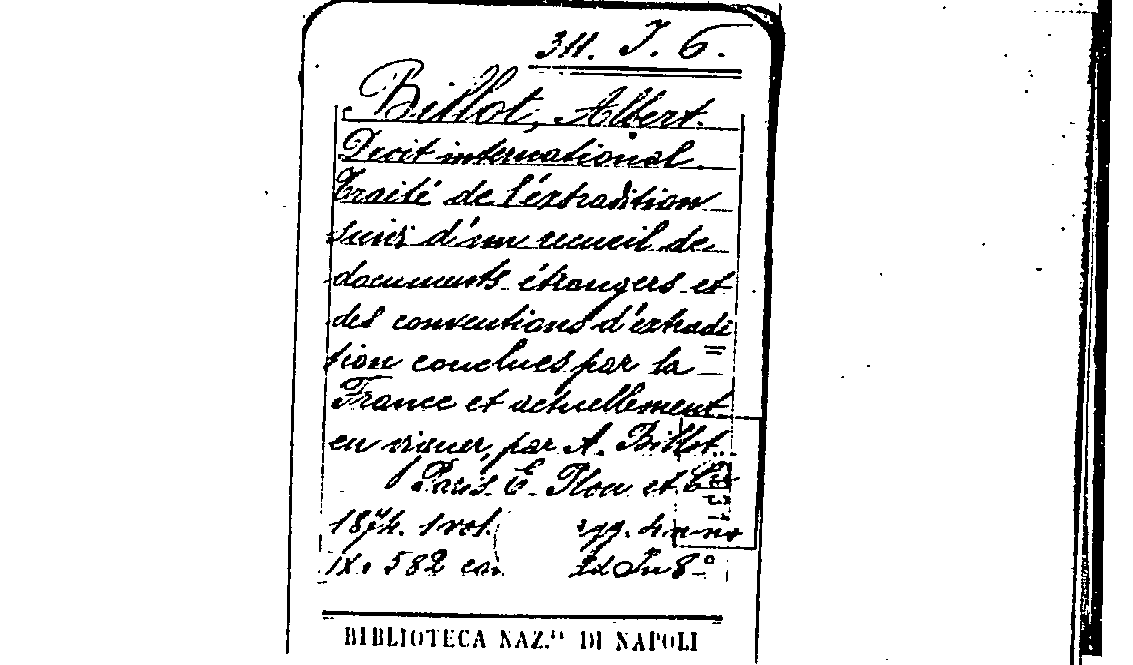 311. J. 6.
Billot, Albert.
Droit international.
Traité de l'éxtradition
suivi d'un recueil de
documents étrangers et
des conventions d'extradi
tion conclues par la
France et actuellement
en viguer, par A. Billot.
Paris. E. Plon et C.ie
1874. 1 vol. pgg.
IX. 582 In 8º
BIBLIOTECA NAZ.LE DI NAPOLI